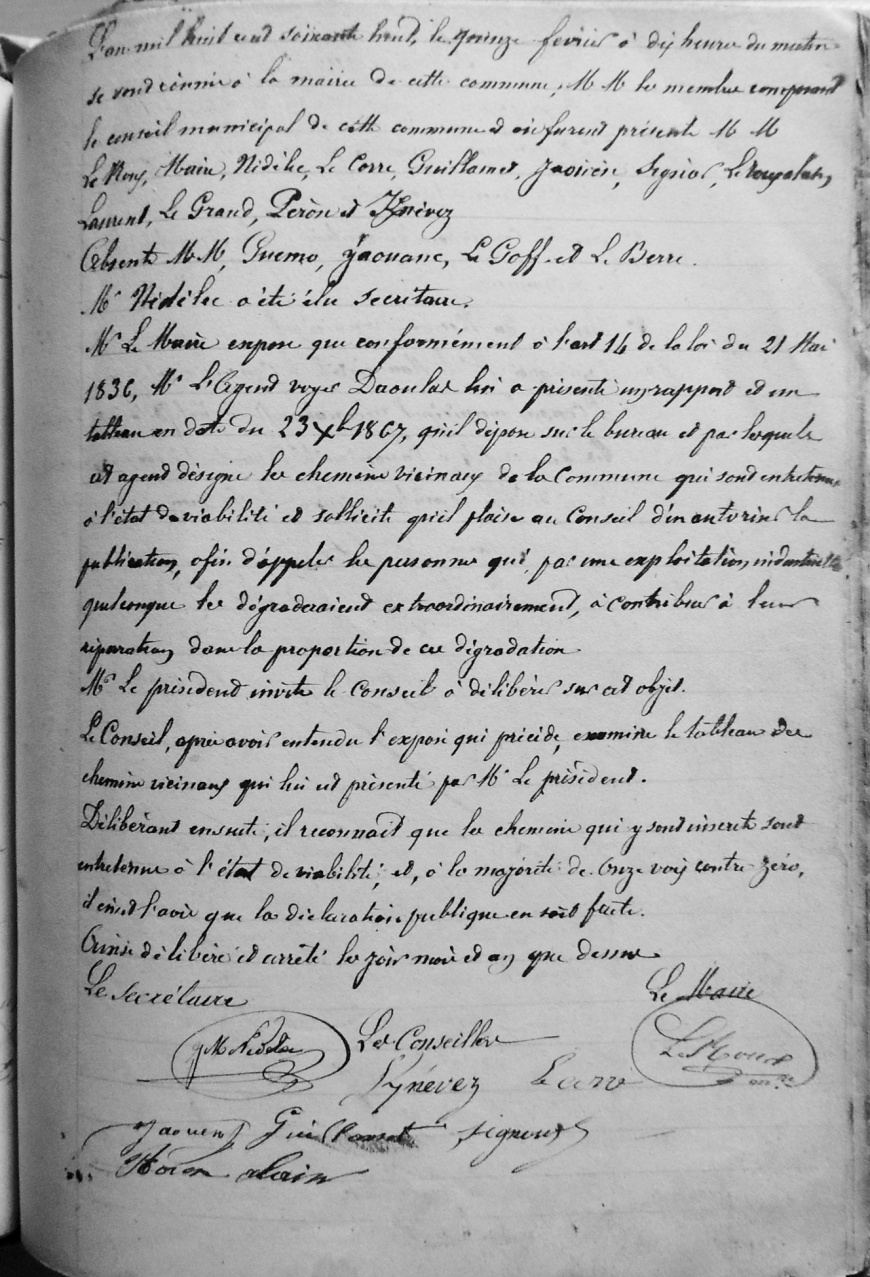 L'an mil huit cent soixante huit, le quinze fevrier à dix heures du matin
se sont réunis à la mairie de cette commune, M M les membres composant
le conseil municipal de cette commune et où furent présents M M
Le Roux, Maire, Nédélec, Le Corre, Guillamet, Jaouen, Signour,
Laurent, Le Grand, Péron et Kynévez
Absents MM, Guermo, Jaouanc, Le Goff et Le Berre.
Mr Nédélec a été élu secrétaire.
Mr Le Maire expose que conformément à l'art 14 de la loi du 21 Mai
1836, Mr L'Agent voyer Daoulas lui a présenté un rapport et un
tableau en date du 23 Xbre 1867, qu'il dépose sur le bureau et par lesquels
cet agent désigne les chemins vicinaux de la Commune qui sont entretenus
à l'état de viabilité et sollicite qu'il plaise au Conseil d'en autoriser la
publication, afin d'appeler les personnes qui, par une exploitation industrielle
quelconque les dégraderaient extraordinairement, à contribuer à leur
réparation dans la proportion de ces dégradation
Mr Le président invite le Conseil à délibérer sur cet objet.
Le Conseil, après avoir entendu l'exposé qui précède, examine le tableau des
chemins vicinaux qui lui est présenté par Mr Le président.
Délibérant ensuite, il reconnait que les chemins qui y sont inscrits sont
entretenus à l'état de viabilité, et, à la majorité de Onze voix contre zéro,
il émet l'avis que la déclaration publique en soit faite.
Ainsi délibéré et arrêté les jour mois et an que dessus
Le Secrétaire Le Maire
Les Conseillers
M Nédélec Le Roux
Kynévez Le Corre
Jaouen Guillamet Signour
Alain